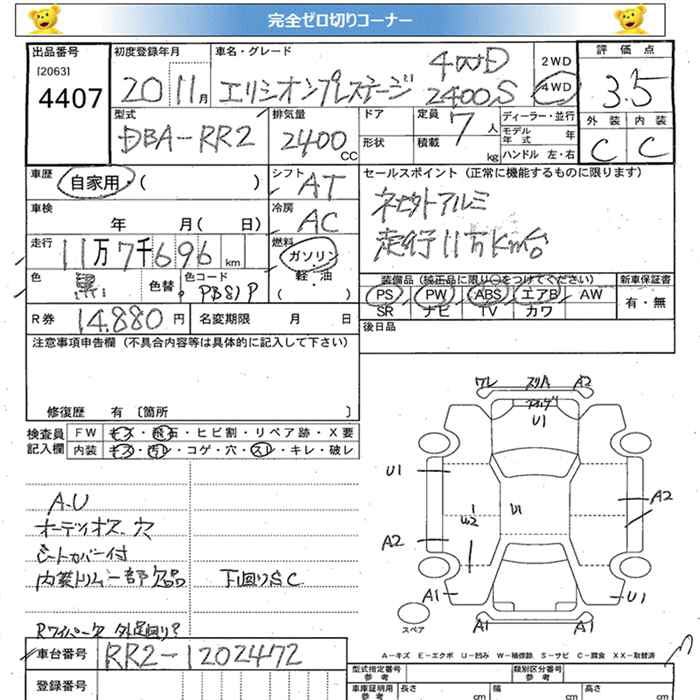 完全ゼロ切りコーナー
出品番号 初度登録年月 車名・グレード 2WD 評価点
[2063]
4407 20 11月 エリシオンプレステージ 4WD 2400S 4WD 3.5
型式 排気量 ドア 定員 ディーラー・並行 外装 内装
DBA-RR2 2400 CC 形状 積載 7人 kg モデル年式 年 ハンドル 左・右 C C
車歴 自家用・( ) シフト AT セールスポイント (正常に機能するものに限ります)
車検 年 月( 日) 冷房 AC
アルミ
走行11万km台
走行 11万7千696 km 燃料 ガソリン・軽・油 ( )
色 黒 色替 色コード PB81P
装備品 (純正品に限り○をつけてください) 新車保証書
PS PW ABS エアB AW 有・無
SR ナビ TV カワ
R券 14,880円 名変期限 月 日 後日品
注意事項申告欄 (不具合内容等は具体的に記入して下さい)
修復歴 有 [箇所 ]
検査員 FW キズ・飛石・ヒビ割・リペア跡・X要
記入欄 内装 キズ・汚レ・コゲ・穴・スレ・キレ・破レ
A.U
オーデッオス、穴
シートカバー付
内装トリム一部欠品 下回りSC
ワレ スリキ A2
U1
U1
A2
U2 U1
A2
A1 U1
スペア A1 A1
A-キズ E-エクボ U-凹み W-補修跡 S-サビ C-腐食 XX-取替済
車台番号 RR2-1202472
登録番号
型式指定番号 参考 類別区分番号 参考
車庫証明用 参考 長さ cm 幅 cm 高さ cm